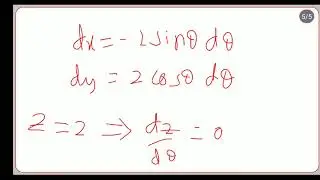 5/5
dx = -2 sinθ dθ
dy = 2 cosθ dθ
z = 2 ⇒ dz/dθ = 0